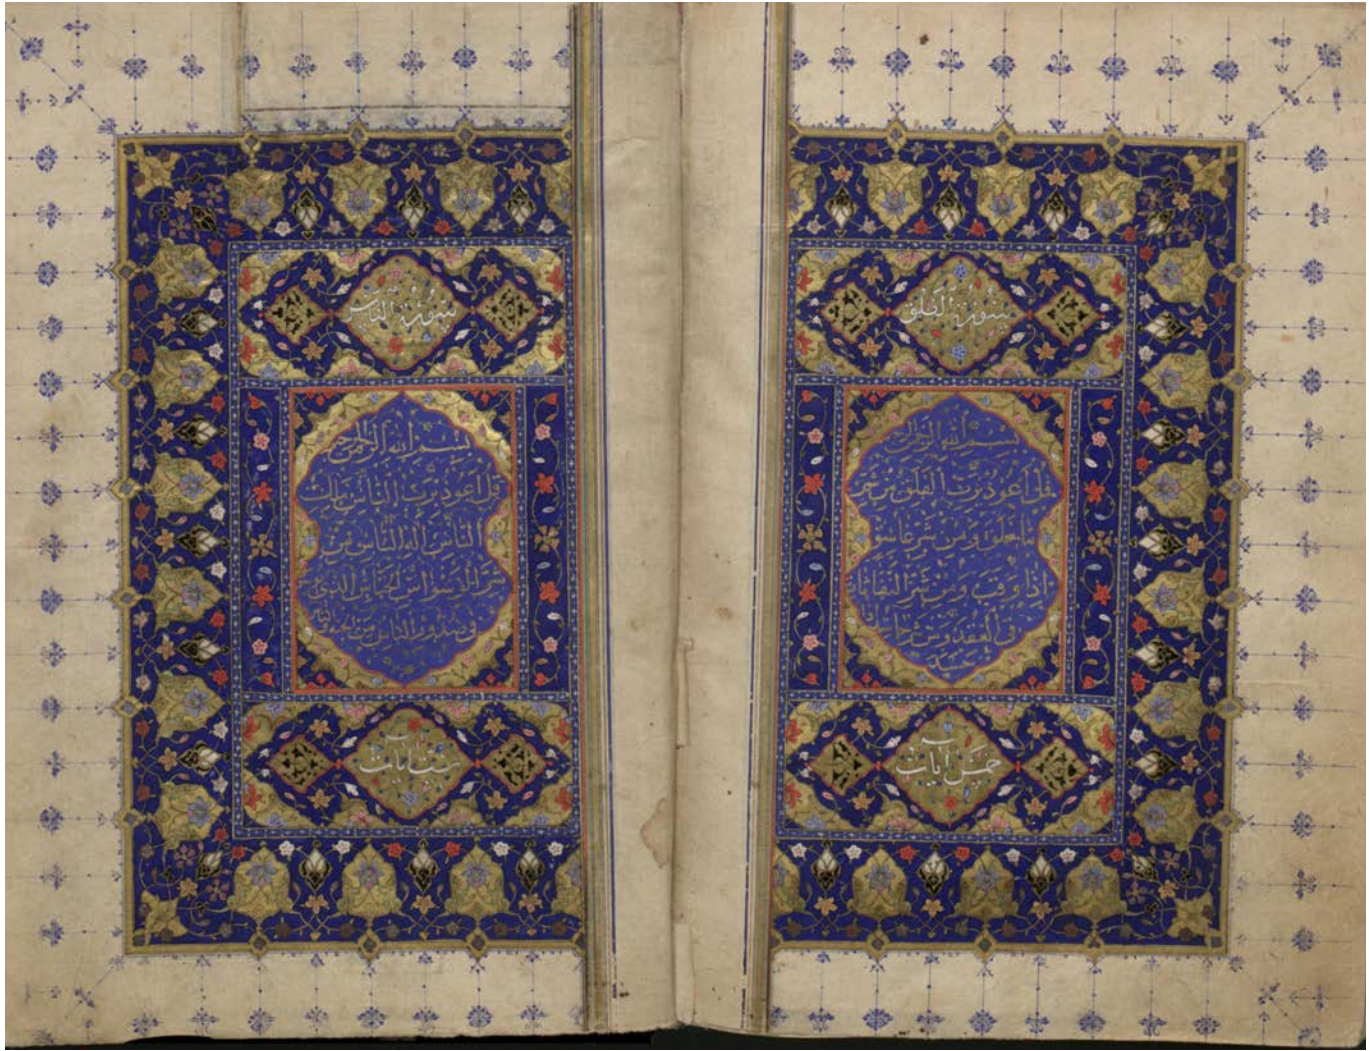 سورة الفلق
بسم الله الرحمن الرحيم
قل اعوذ برب الفلق من شر
ما خلق ومن شر غاسق
اذا وقب ومن شر النفاثات
في العقد ومن شر حاسد اذا
حسد
خمس آيات
سورة الناس
بسم الله الرحمن الرحيم
قل اعوذ برب الناس ملك
الناس اله الناس من
شر الوسواس الخناس الذي يوسوس
في صدور الناس من الجنة والناس
ست آيات